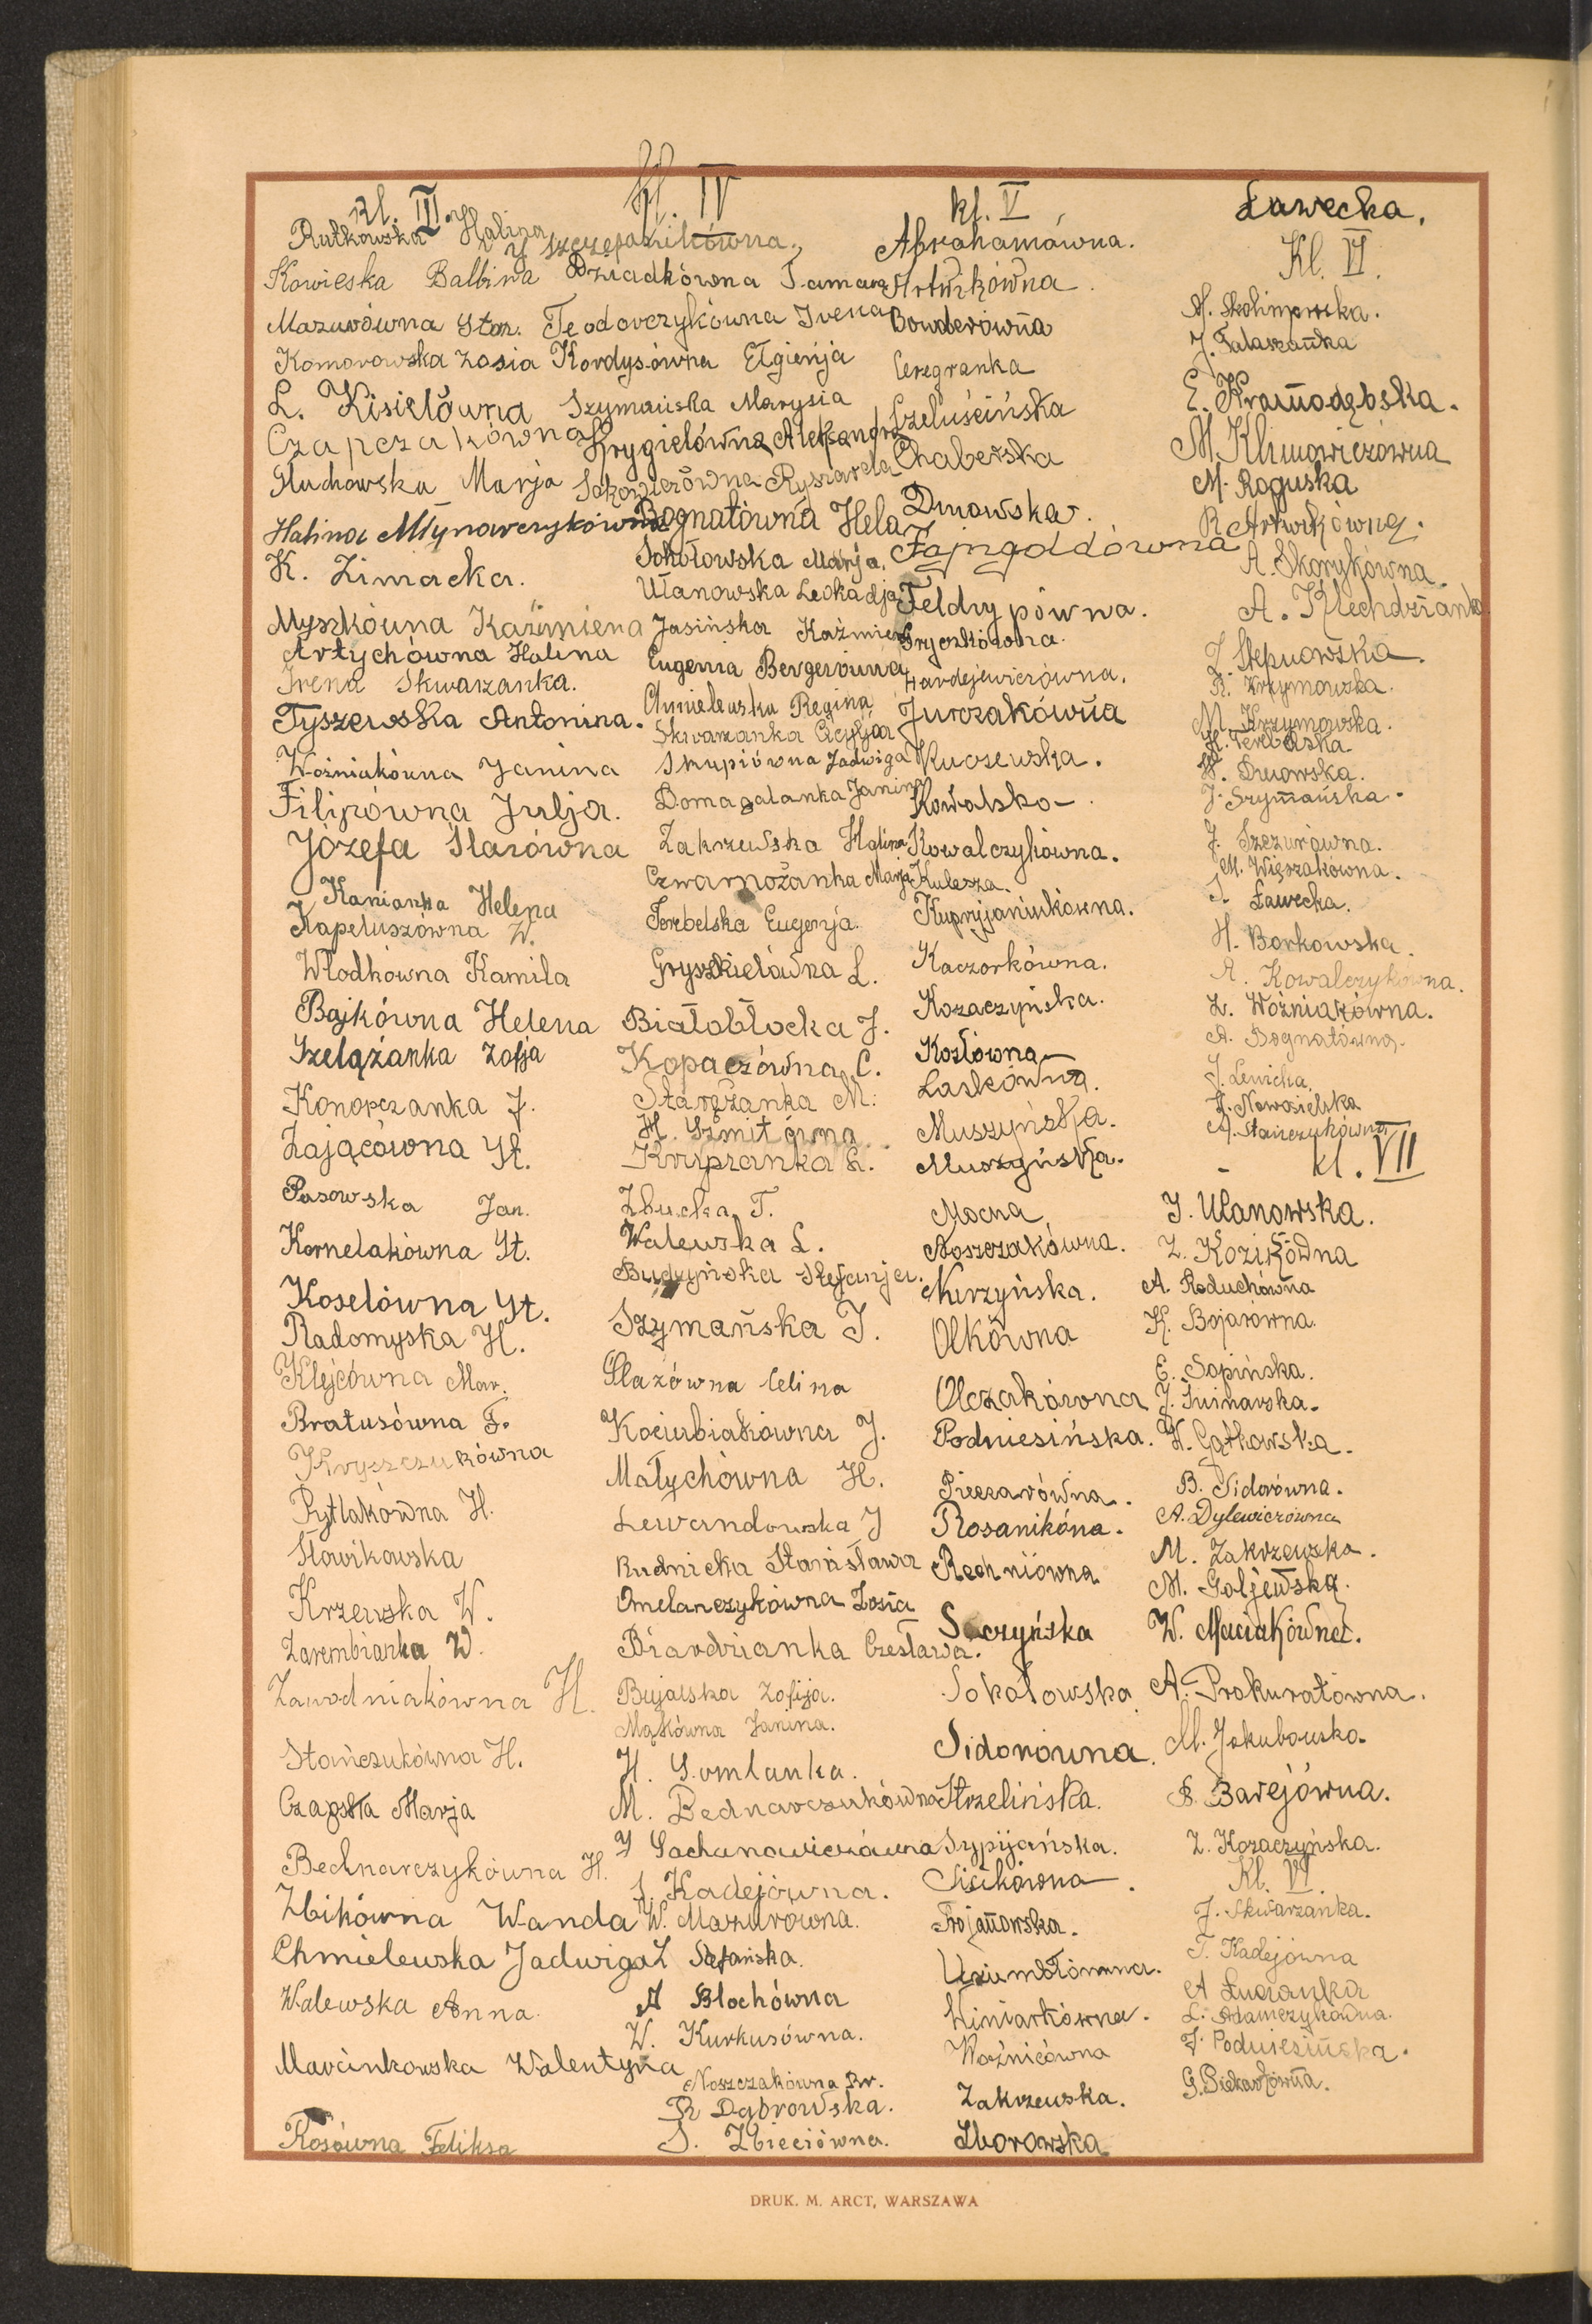 Kl. III.
Rutkowska Halina
Kowieska Balbina
Mazurówna Stan.
Komorowska Zosia
L. Kisielówna
Czapczakówna
Głuchowska Marja
Halina Młynarczykówna
K. Zimacka.
Myszkówna Kazimiera
Artychówna Halina
Irena Skwarzanka.
Tyszewska Antonina.
Woźniakówna Janina
Filipówna Julja.
Józefa Ślazówna
Kanianka Helena
Kapeluszówna W.
Włodkówna Kamila
Bajkówna Helena
Szelążanka Zofja
Konopczanka J.
Zającówna St.
Pasowska Jan.
Kornelakówna St.
Koselówna St.
Radomyska H.
Klejcówna Mar.
Bratusówna F.
Kryszczukówna
Pytlakówna H.
Słowikowska
Krzewska W.
Zarembianka W.
Zawodniakówna H.
Stańczukówna H.
Czapska Marja
Bednarczykówna H.
Zbikówna Wanda
Chmielewska Jadwiga
Walewska Anna
Marcinkowska Walentyna
Rosówna Feliksa
Kl. IV
Szczepanikówna.
Dziadkówna Tamara
Teodorczykówna Irena
Kordysówna Elgienja
Szymańska Marysia
Krygielówna Aleksandra
Ryszarda
Bognatówna Hela
Sokołowska Marja.
Ułanowska Leokadja
Jasińska Kaźmiera
Eugenia Bergerówna
Chmielewska Regina
Skwarzanka Cecylja
Skupiówna Jadwiga
Domagalanka Janina
Zakrzewska Halina
Czwarnożanka Marja
Terebelska Eugenja.
Gryszkielówna L.
Białobłocka J.
Kopaczówna C.
Starczanka M.
H. Szmitówna
Kasprzanka L.
Zbucka T.
Walewska L.
Budzyńska Stefanja.
Szymańska J.
Ślazówna Celina
Kociubiakówna J.
Małychówna H.
Lewandowska J
Rudnicka Stanisława
Omelanczykówna Zosia
Biardzianka Czesława.
Bujalska Zofija.
Mąkówna Janina.
H. Somlanka.
M. Bednarczukówna
Y Sachanowiczówna
J. Kadejówna.
W. Mazurówna.
Z Stefańska.
A Blochówna
W. Kurkusówna.
Noszczakówna Br.
R Dąbrowska.
S. Zbieciówna.
kl. V
Abrahamówna.
Artwikówna.
Bowderówna
Ceregranka
Czeluścińska
Chaberska
Dmowska.
Fajngoldówna
Feldrypówna.
Gryczkówna.
Hardejewiczówna.
Jurczakówna
Kuczewska.
Kowalska.
Kowalczykówna.
Kulesza.
Kupryjaniukówna.
Kaczorkówna.
Kozaczyńska.
Kozłówna
Laskówna.
Muszyńska.
Muszyńska.
Mocna
Noszczakówna.
Nurzyńska.
Olkówna
Olczakówna
Podniesińska.
Pieczarówna.
Rosanikóna.
Rechniówna
Saczyńska
Sokołowska
Sidorówna.
Strzelińska.
Sypijańska.
Siekówna.
Trojanowska.
Uziumbłówna.
Winiarkówna.
Woźnicówna
Zakrzewska.
Zborowska
Ławecka.
Kl. VI.
H. Skolimowska.
J. Tałaszanka
E. Krasnodębska.
M. Klimowiczówna
M. Roguska
R. Artwikówna.
A. Skorykówna.
A. Klechdzianka
Z. Stepnowska.
R. Krzymowska.
M. Krzymowska.
H. Terebelska
W. Dmowska.
J. Szymańska.
J. Szczurówna.
M. Więszakówna.
S. Ławecka.
H. Borkowska.
A. Kowalczykówna.
Z. Woźniakówna.
A. Bognatówna.
J. Lewicka.
H. Nowosielska
A. Stańczukówna
kl. VII
J. Ulanowska.
Z. Kozikówna
A. Raduchówna
K. Bojarówna.
E. Sopińska.
J. Świnarska.
W. Gątkowska.
B. Sidorówna.
A. Dylewiczówna
M. Zakrzewska.
M. Goljewska.
W. Maciakówna.
A. Prokuratówna.
M. Jakubowska.
S. Barejówna.
Z. Kozaczyńska.
Kl. VI.
J. Skwarzanka.
T. Kadejówna
A Łucianka
L. Adamczykówna.
J. Podniesińska.
G. Piekarkówna.
DRUK. M. ARCT, WARSZAWA